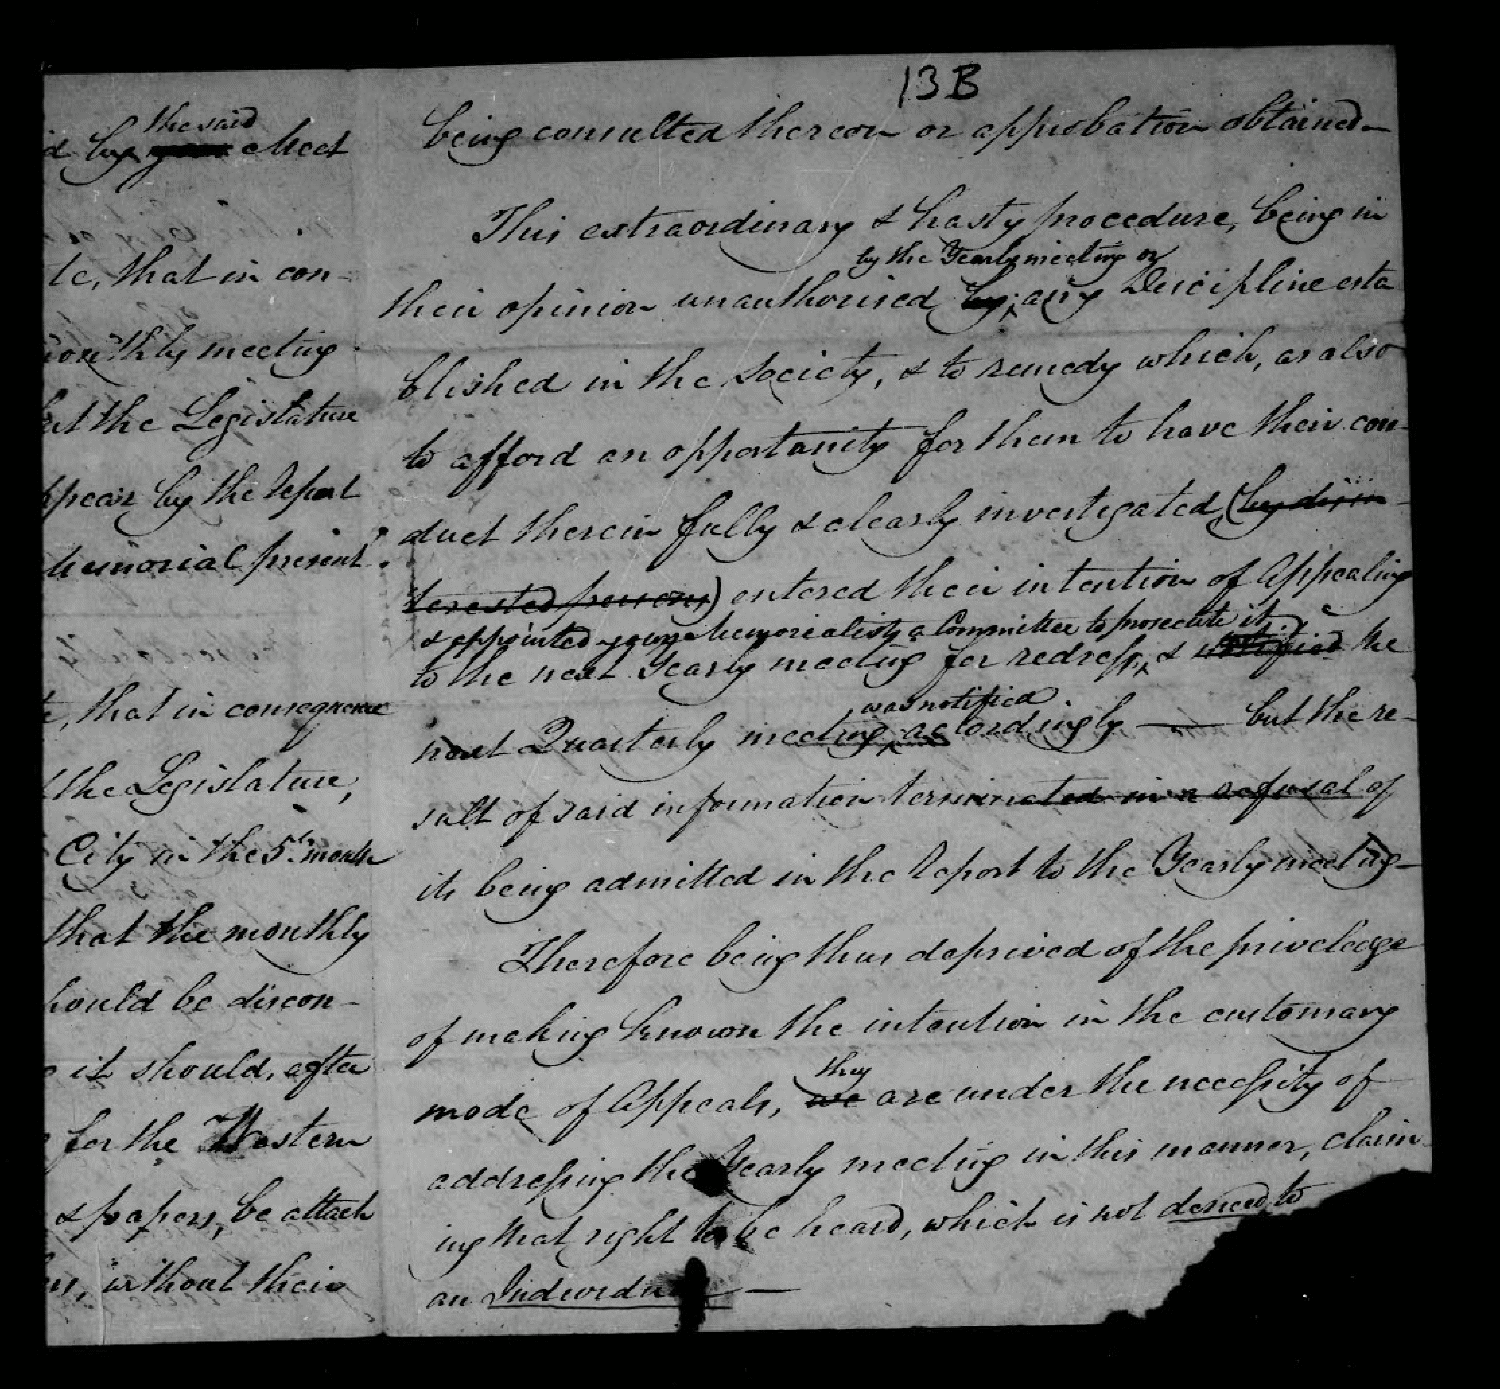 13B
the said
by Meet
te, that in con-
monthly meeting
the Legislature
ppear by the Report
Memorial present
that in consequence
the Legislature,
City in the 5th month
that the monthly
hould be discon-
it should, after
for the Western
& papers, be attach
without their
being consulted thereon or approbation obtained—
This extraordinary & hasty procedure, being in
by the Yearly meeting or
their opinion unauthorised by any Discipline esta
blished in the Society, & to remedy which, as also
to afford an opportunity for them to have their con-
duct therein fully & clearly investigated, (by disin-
terested persons) entered their intention of Appealing
& appointed your Memorialists a Committee to prosecute it
to the next Yearly meeting for redress, & notified the
was notified
next Quarterly meeting accordingly — but the re-
sult of said information terminated in a refusal of
its being admitted in the Report to the Yearly meeting—
Therefore being thus deprived of the priveledge
of making known the intention in the customary
they
mode of Appeals, we are under the necessity of
addressing the Yearly meeting in this manner, claim
ing that right to be heard, which is not denied to
an Individu —